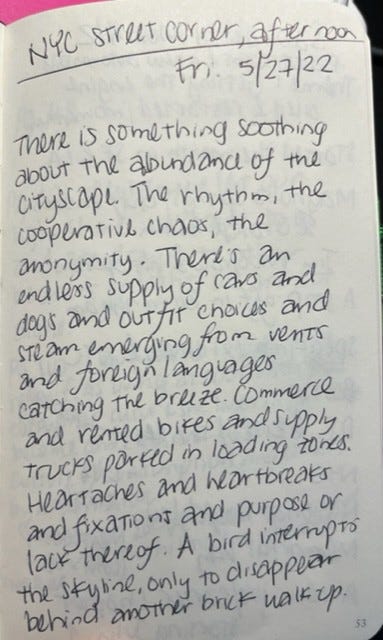 NYC street corner, afternoon
Fri. 5/27/22
There is something soothing
about the abundance of the
cityscape. The rhythm, the
cooperative chaos, the
anonymity. There's an
endless supply of cars and
dogs and outfit choices and
steam emerging from vents
and foreign languages
catching the breeze. Commerce
and rented bikes and supply
trucks parked in loading zones.
Heartaches and heartbreaks
and fixations and purpose or
lack thereof. A bird interrupts
the skyline, only to disappear
behind another brick walk up.
53